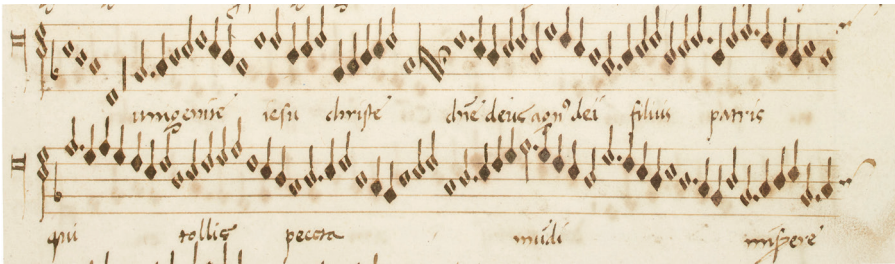 unigenite iesu christe dñe deus agn9 dei filius patris
qui tollis peccata mūdi misere